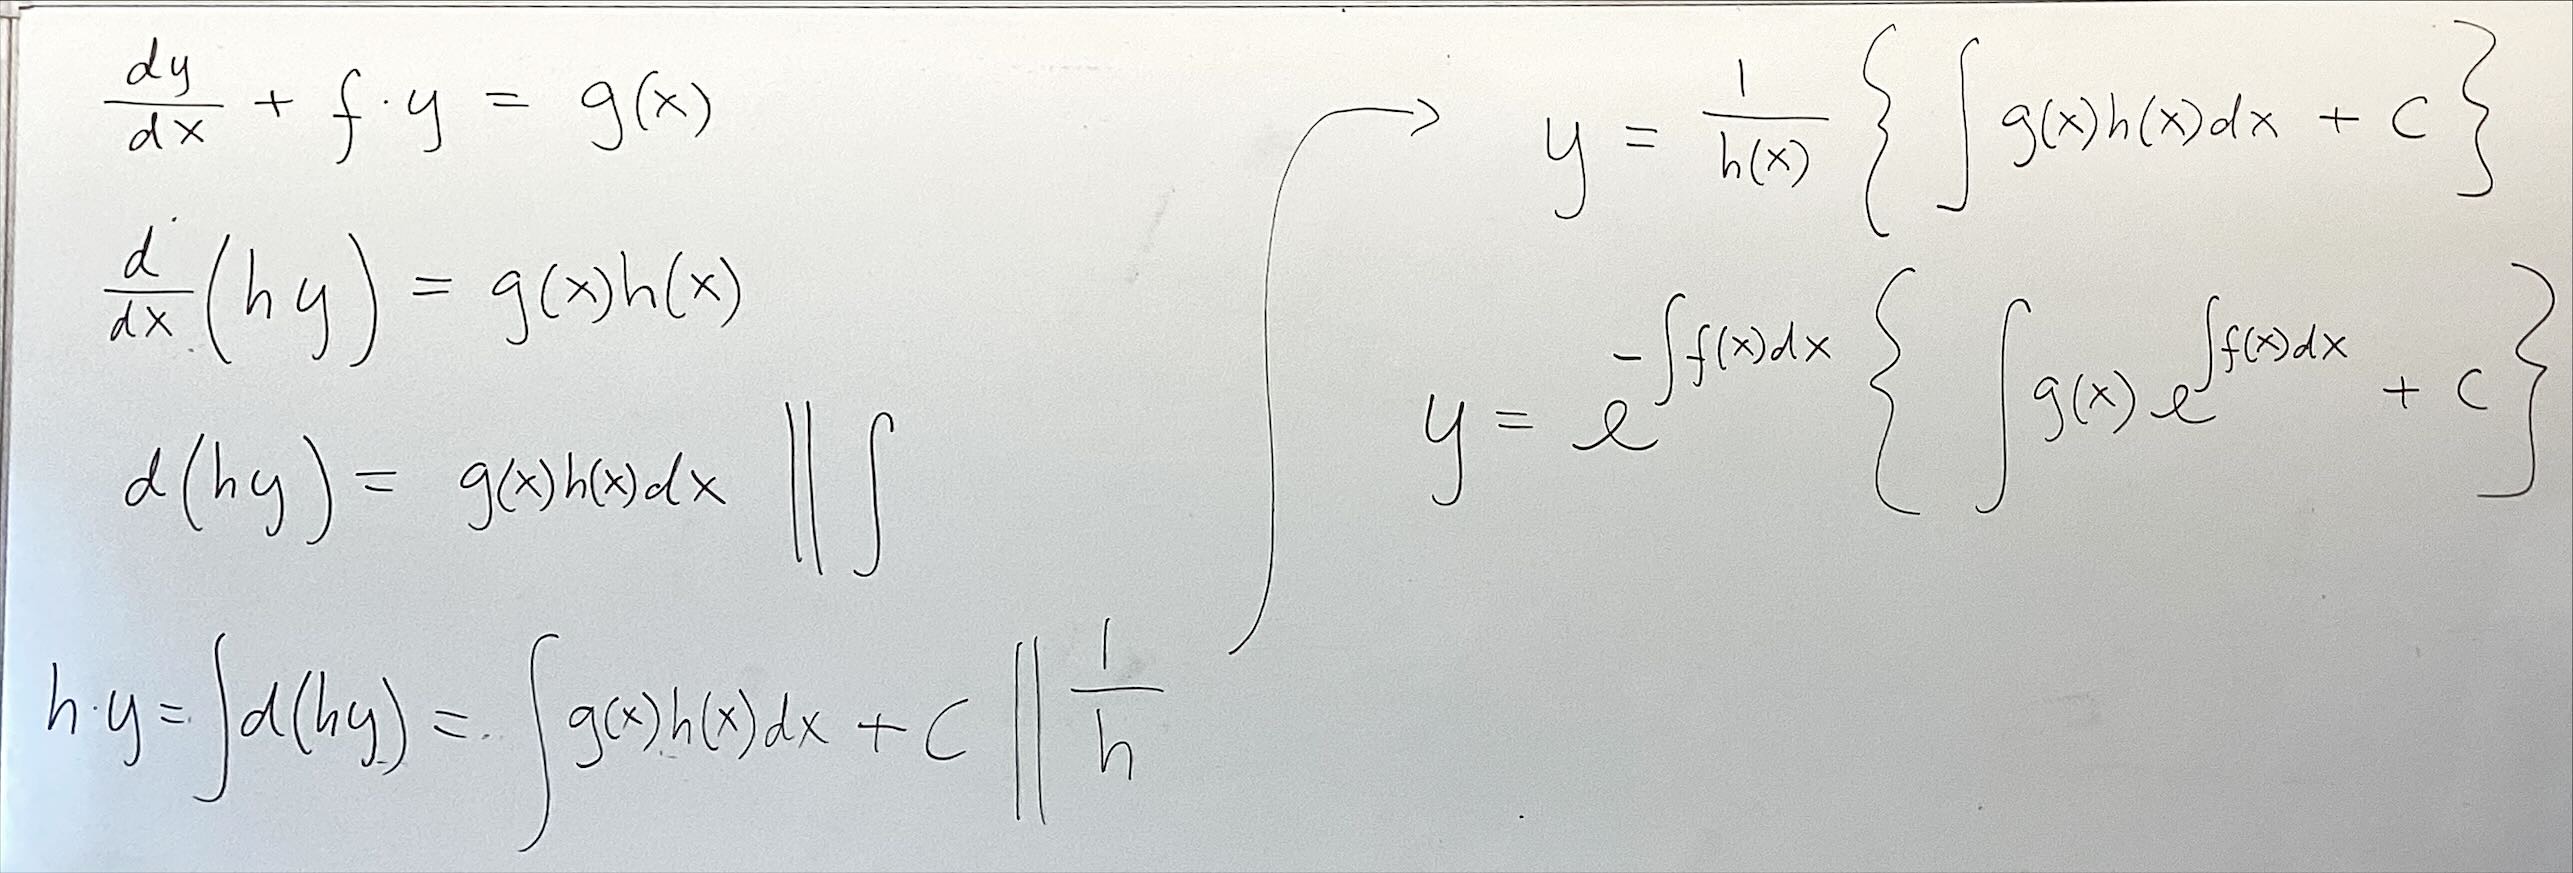 dy/dx + f·y = g(x)
d/dx (hy) = g(x)h(x)
d(hy) = g(x)h(x)dx || ∫
h·y = ∫d(hy) = ∫g(x)h(x)dx + C || 1/h
→ y = 1/h(x) { ∫g(x)h(x)dx + C }
y = e^(-∫f(x)dx) { ∫g(x) e^(∫f(x)dx) + C }